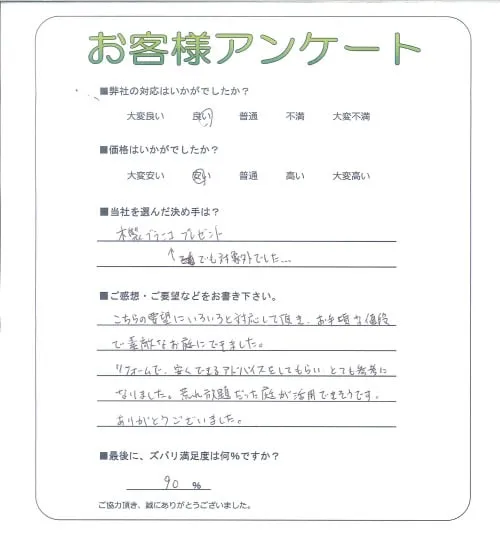 お客様アンケート
■弊社の対応はいかがでしたか？
大変良い 良い 普通 不満 大変不満
■価格はいかがでしたか？
大変安い 安い 普通 高い 大変高い
■当社を選んだ決め手は？
木製ブランコ プレゼント
↑ でも対象外でした...
■ご感想・ご要望などをお書き下さい。
こちらの要望にいろいろと対応して頂き、お手頃な値段
で素敵なお庭にできました。
リフォームで、安くできるアドバイスをしてもらい とても参考に
なりました。荒れ放題だった庭が活用できそうです。
ありがとうございました。
■最後に、ズバリ満足度は何%ですか？
90 %
ご協力頂き、誠にありがとうございました。